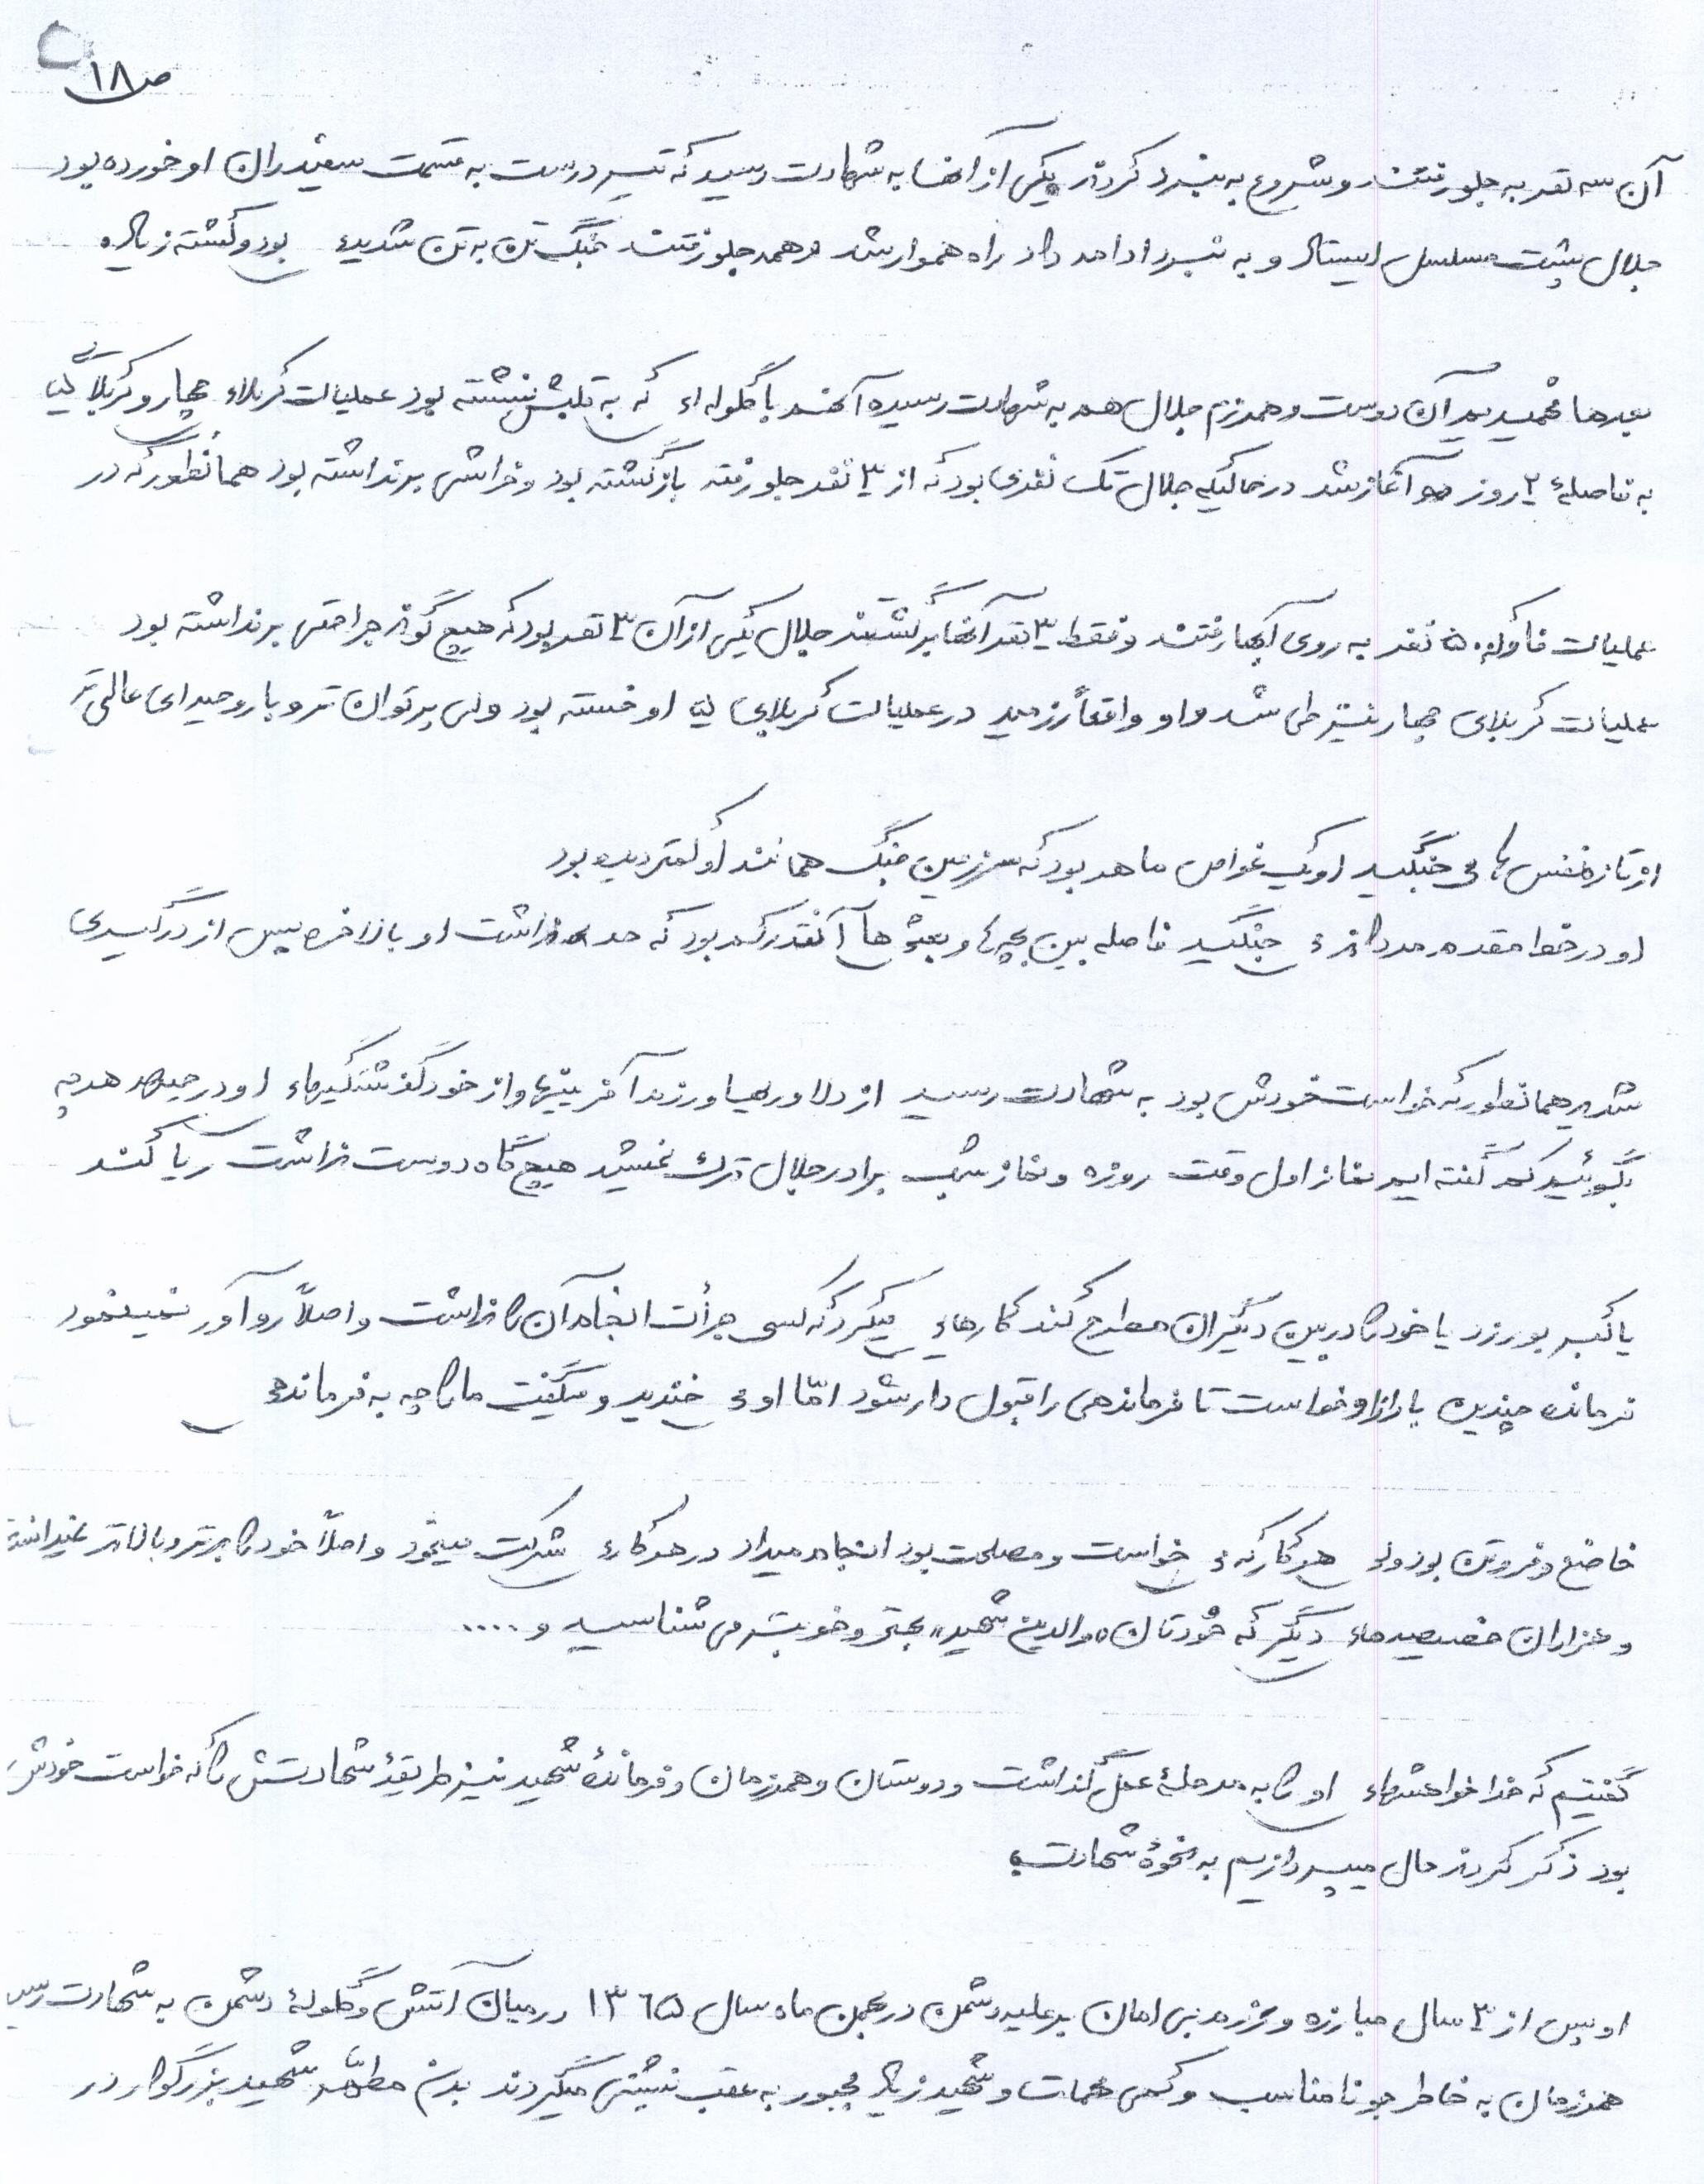 ص ۱۸
آن سه نفر به جلو رفتند و شروع به نبرد کردند یکی از آنها به شهادت رسید که تیر درست به قسمت سفید ران او خورده بود
جلال پشت مسلسل ایستاد و به نبرد ادامه داد راه هموار شد و همه جلو رفتند جنگ تن به تن شدیدی بود و کشته زیاد
بعدها فهمیدیم آن دوست و همرزم جلال هم به شهادت رسیده آنهم با گلوله ای که به قلبش نشسته بود عملیات کربلاء چهار و کربلای ۵
به فاصلهٔ ۲ روز آغاز شد در حالیکه جلال تک نفری بود که از ۳ نفر جلو رفته بازگشته بود و خراش برنداشته بود همانطور که در
عملیات فاو که ۵۰ نفر به روی آبها رفتند و فقط ۳ نفر آنها برگشتند جلال یکی از آن ۳ نفر بود که هیچ گونه جراحتی برنداشته بود
عملیات کربلای چهار نیز طی شد و او واقعاً رزمید در عملیات کربلای ۵ او خسته بود ولی پرتوان تر و با روحیه ای عالی تر
از تازه نفس ها می جنگید او یک غواص ماهر بود که سرزمین جنگ همانند او کمتر دیده بود
او در خط مقدم مردانه می جنگید فاصله بین بچه ها و بعثی ها آنقدر کم بود که حد نداشت او بالاخره پس از درگیری
شدید همانطور که خواست خودش بود به شهادت رسید از دلاوریها و رزم آفرینیها و از خودگذشتگیهای او در جبهه هر چه
بگوئیم کم گفته ایم نماز اول وقت روزه و نماز شب برادر جلال ترک نمیشد هیچ گاه دوست نداشت ریا کند
یا کبر بورزد یا خود را در بین دیگران مطرح کند کارهای میکرد که کسی جرأت انجام آن را نداشت و اصلاً رو آور نمینمود
فرمانده چندین بار از او خواست تا فرماندهی را قبول دار شود امّا او می خندید و میگفت ما را چه به فرماندهی
خاضع و فروتن بود ولی هر کار که می خواست و مصلحت بود انجام میداد در هر کاری شرکت مینمود و اصلاً خود را برتر و بالاتر نمیدانست
و هزاران خصیصه های دیگر که خودتان «والدین شهید» بهتر و خوبتر می شناسید و ....
گفتیم که خدا خواهشهای او را به مرحلهٔ عمل گذاشت و دوستان و همرزمان و فرماندهٔ شهید نیز طریقهٔ شهادتش را که خواست خودش
بود ذکر کردند حال میپردازیم به نحوهٔ شهادت
او پس از ۳ سال مبارزه و رزم بی امان بر علیه دشمن در بهمن ماه سال ۱۳۶۵ در میان آتش و گلولهٔ دشمن به شهادت رسید
همرزمان به خاطر جو نامناسب و کمی مهمات و شهید زیاد مجبور به عقب نشینی میگردند بدن مطهّر شهید بزرگوار در